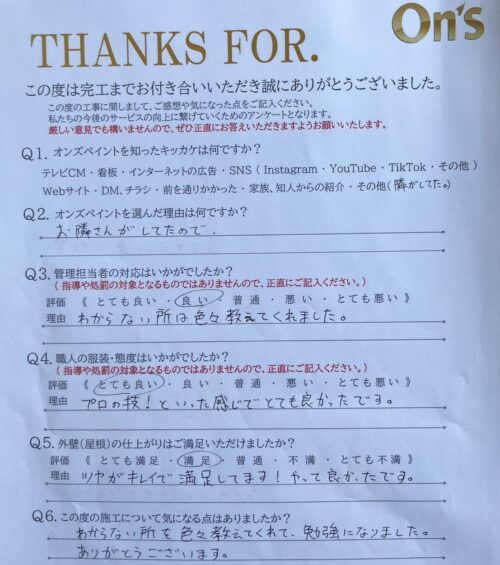 On's
THANKS FOR.
この度は完工までお付き合いいただき誠にありがとうございました。
この度の工事に関しまして、ご感想や気になった点をご記入ください。
私たちの今後のサービスの向上に繋げていくためのアンケートとなります。
厳しい意見でも構いませんので、ぜひ正直にお答えいただきますようお願いいたします。
Q1. オンズペイントを知ったキッカケは何ですか?
テレビCM・看板・インターネットの広告・SNS ( Instagram・YouTube・TikTok・その他 )
Webサイト・DM、チラシ・前を通りかかった・家族、知人からの紹介・その他( 隣がしてた。)
Q2. オンズペイントを選んだ理由は何ですか?
お隣さんがしてたので、
Q3. 管理担当者の対応はいかがでしたか?
( 指導や処罰の対象となるものではありませんので、正直にご記入ください。)
評価 《 とても良い ・ 良い ・ 普通 ・ 悪い ・ とても悪い 》
理由 わからない所は色々教えてくれました。
Q4. 職人の服装・態度はいかがでしたか?
( 指導や処罰の対象となるものではありませんので、正直にご記入ください。)
評価 《 とても良い ・ 良い ・ 普通 ・ 悪い ・ とても悪い 》
理由 プロの技!といった感じでとても良かったです。
Q5. 外壁(屋根)の仕上がりはご満足いただけましたか?
評価 《 とても満足 ・ 満足 ・ 普通 ・ 不満 ・ とても不満 》
理由 ツヤがキレイで満足してます!やって良かったです。
Q6. この度の施工について気になる点はありましたか?
わからない所を色々教えてくれて、勉強になりました。
ありがとうございます。